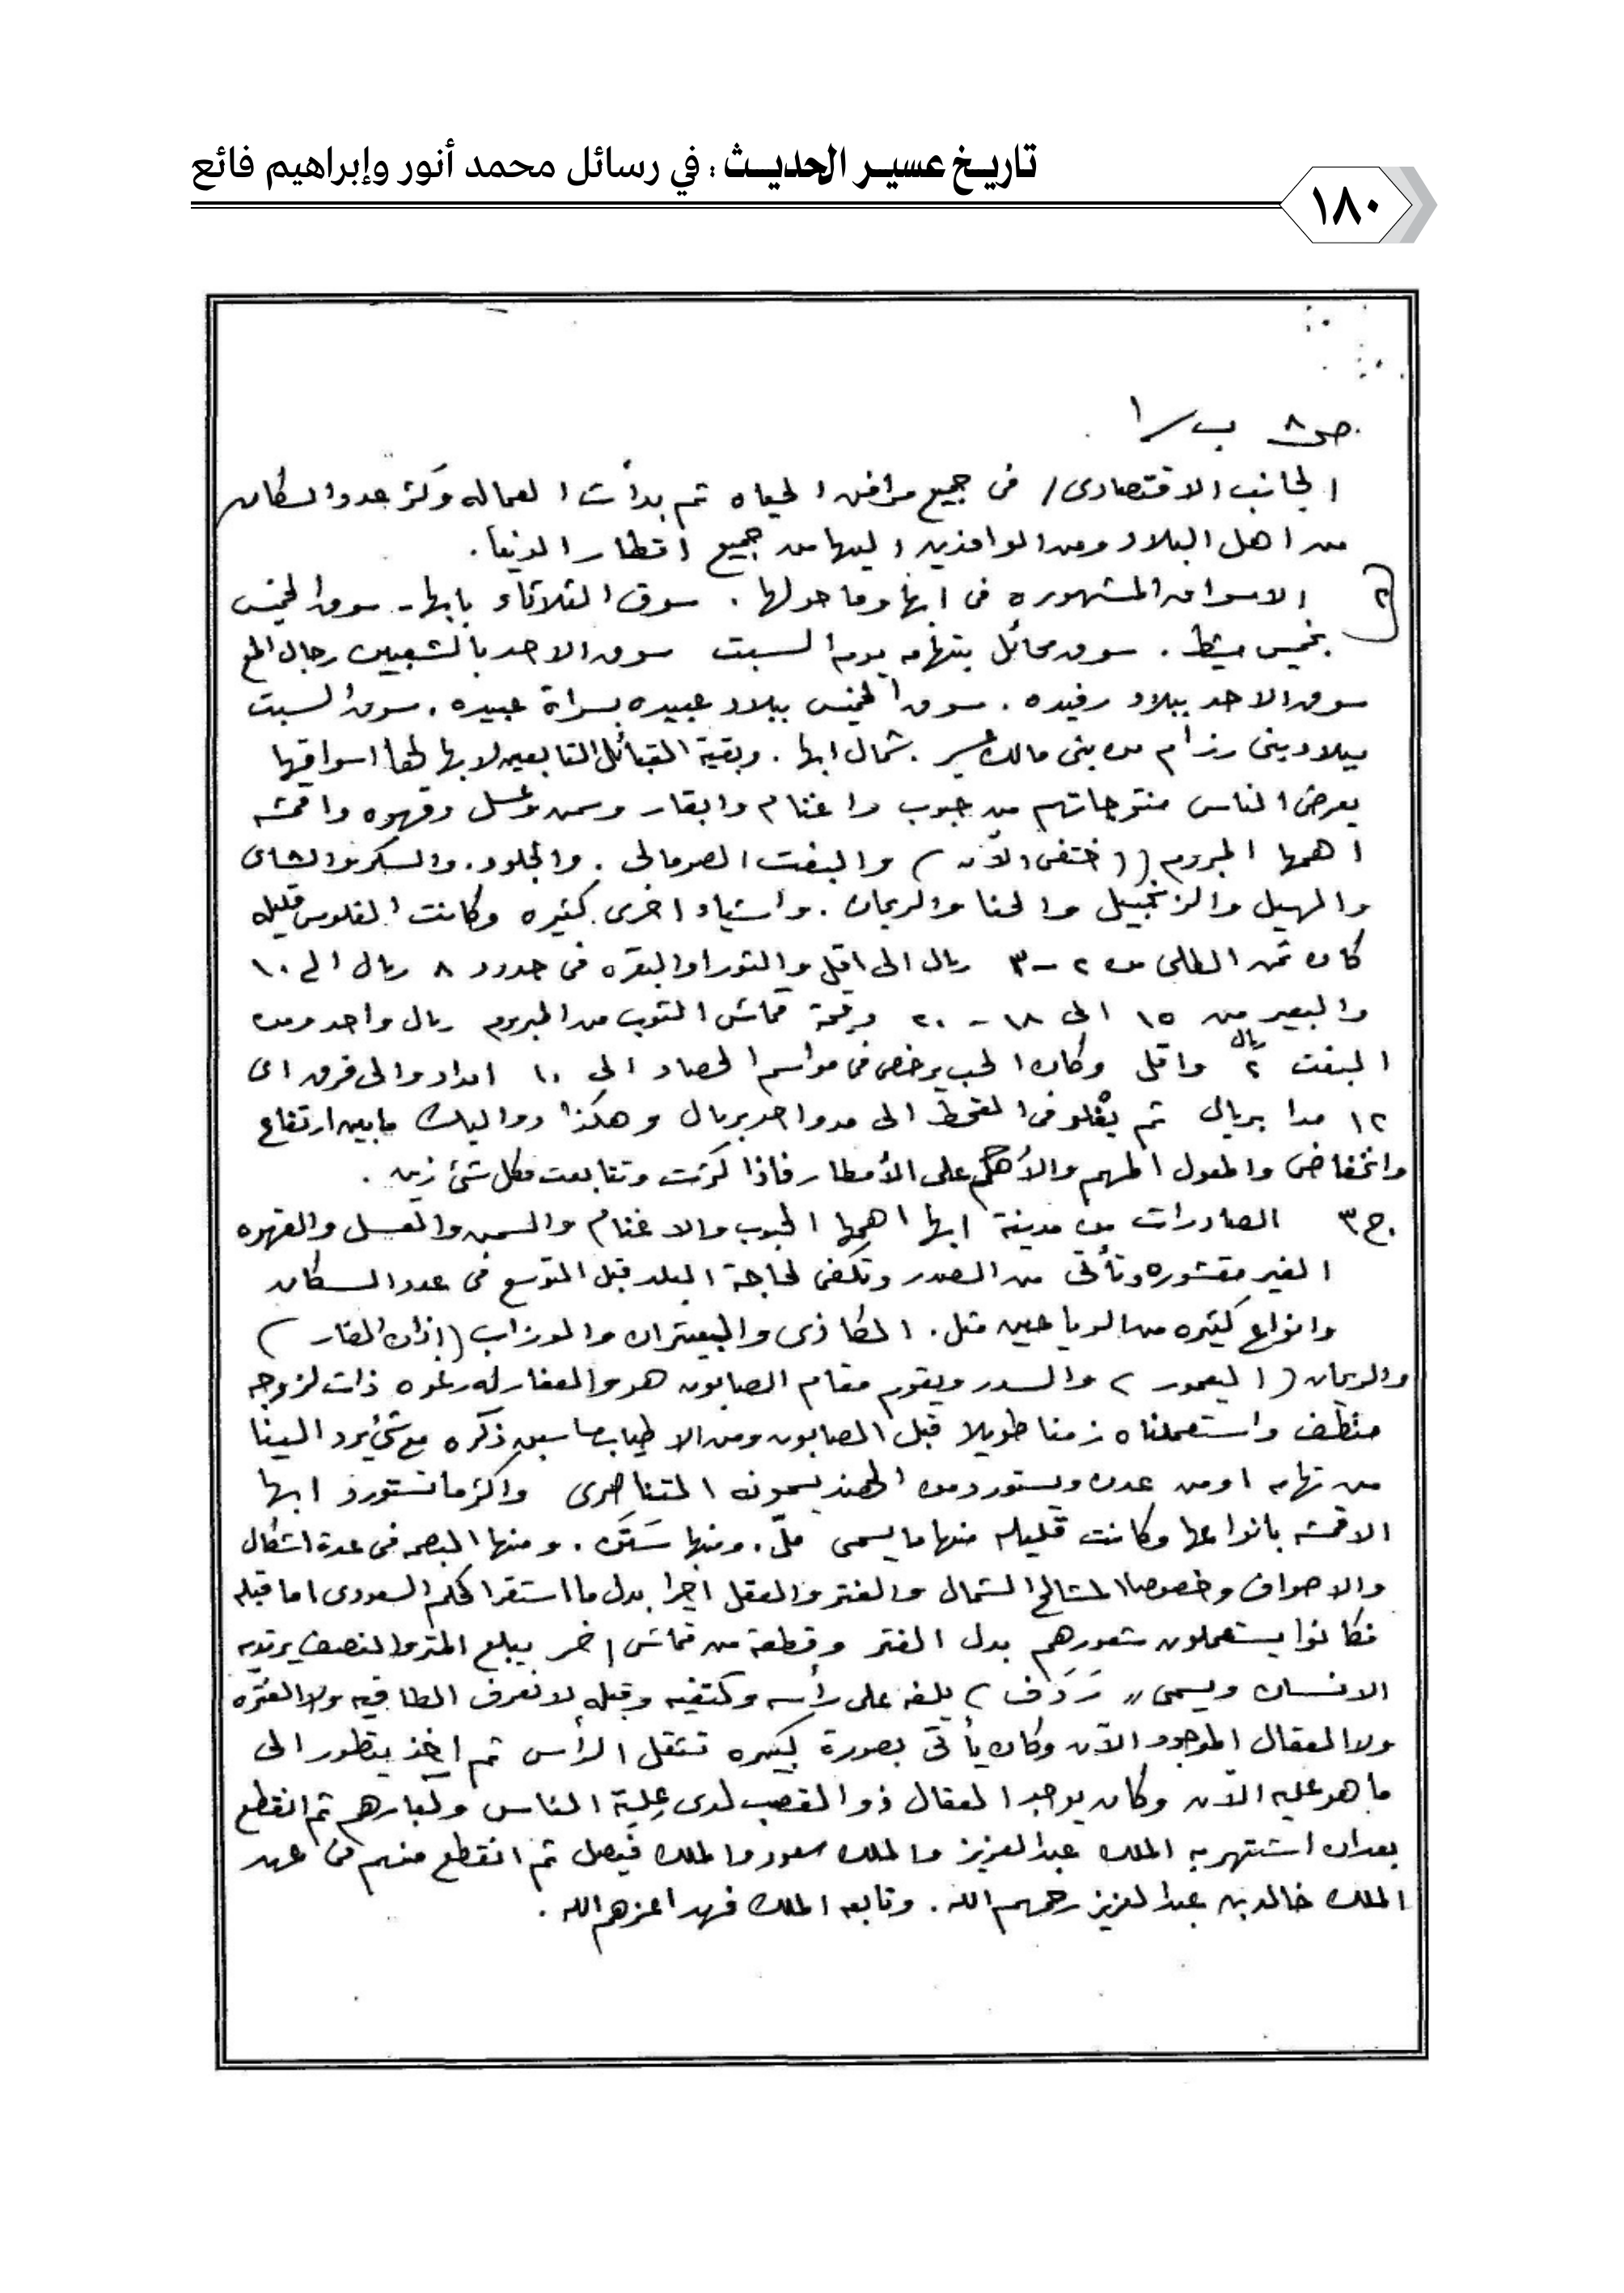 تاريخ عسير الحديث : في رسائل محمد أنور وإبراهيم فائع
١٨٠
ص٨ ب/١
الجانب الاقتصادى / فى جميع مرافق الحياه ثم بدأت العماله وكثر عدد السكان
من اهل البلاد ومن الوافدين اليها من جميع اقطار الدنيا .
ج٢ الاسواق المشهوره فى ابها وما حولها . سوق الثلاثاء بابها - سوق الخميس
بخميس مشيط . سوق محائل بتهامه يوم السبت سوق الاحد بالشعبين رجال المع
سوق الاحد ببلاد رفيده . سوق الخميس ببلاد عبيده بسراة عبيده . سوق السبت
ببلاد بنى رزام من بنى مالك عسير . شمال ابها . وبقية القبائل التابعين لابها لها اسواقها
يعرض الناس منتوجاتهم من حبوب واغنام وابقار وسمن وعسل وقهوه واقمشه
اهمها المبروم ( اختفى الآن ) والبفت الصومالى . والجلود . والسكر والشاى
والهيل والزنجبيل والحنا والريحان . واشياء اخرى كثيره وكانت الفلوس قليله
كان ثمن الطلى من ٢ – ٣ ريال الى اقل والثور او البقره فى حدود ٨ ريال الى ١٠
والبعير من ١٥ الى ١٨ – ٢٠ وقيمة قماش الثوب من المبروم ريال واحد ومن
البفت ٢ ريال واقل وكان الحب يرخص فى مواسم الحصاد الى ١٠ امداد والى فرق اى
١٢ مدا بريال ثم يغلو فى القحط الى مد واحد بريال وهكذا دواليك ما بين ارتفاع
وانخفاض والمعول المهم والأهم على الأمطار فاذا كثرت وتتابعت فكل شئ زين .
ج٣ الصادرات من مدينة ابها اهمها الحبوب والاغنام والسمن والعسل والقهوه
الغير مقشوره وتأتى من المصدر وتكفى لحاجة البلد قبل التوسع فى عدد السكان
وانواع كثيره من الرياحين مثل . الكاذى والبعيثران والوزاب ( اذان الفار )
والريحان ( اليعمور ) والسدر ويقوم مقام الصابون هو والعفار له رغوه ذات لزوجه
منظف واستعملناه زمنا طويلا قبل الصابون ومن الاطياب ما سبق ذكره مع شئ يرد الينا
من تهامه او من عدن ويستورد من الهند يسمونه التناصرى واكثر ما تستورد ابها
الاقمشه بانواعها وكانت قليله منها ما يسمى ملّ . ومنها ستن . ومنها المبصم فى عدة اشكال
والاصواف وخصوصا المشالح الشمال والغتر والعقل اخيرا بدل ما استقر الحكم السعودى اما قبله
فكانوا يستعملون شعورهم بدل الغتر وقطعة من قماش اخر يبلغ المتر والنصف يرتديه
الانسان ويسمى " رَدَف ) يلفه على رأسه وكتفيه وقبله لا نعرف الطاقيه ولا الغتره
ولا العقال الموجود الآن وكان يأتى بصورة كبيره تثقل الرأس ثم اخذ يتطور الى
ما هو عليه الآن وكان يوجد العقال ذو القصب لدى عِلية الناس وكبارهم ثم انقطع
بعد ان اشتهر به الملك عبدالعزيز والملك سعود والملك فيصل ثم انقطع منهم فى عهد
الملك خالد بن عبدالعزيز رحمهم الله . وتابعه الملك فهد اعزهم الله .